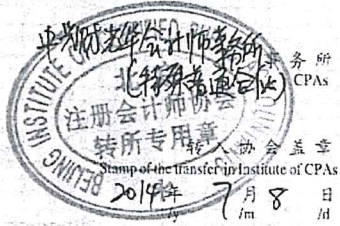 中兴财光华会计师事务所
事务所
CPAs
(特殊普通合伙)
BEIJING INSTITUTE OF
注册会计师协会
转所专用章
转入协会盖章
Stamp of the transfer-in Institute of CPAs
2014年 7月 8日
/y /m /d